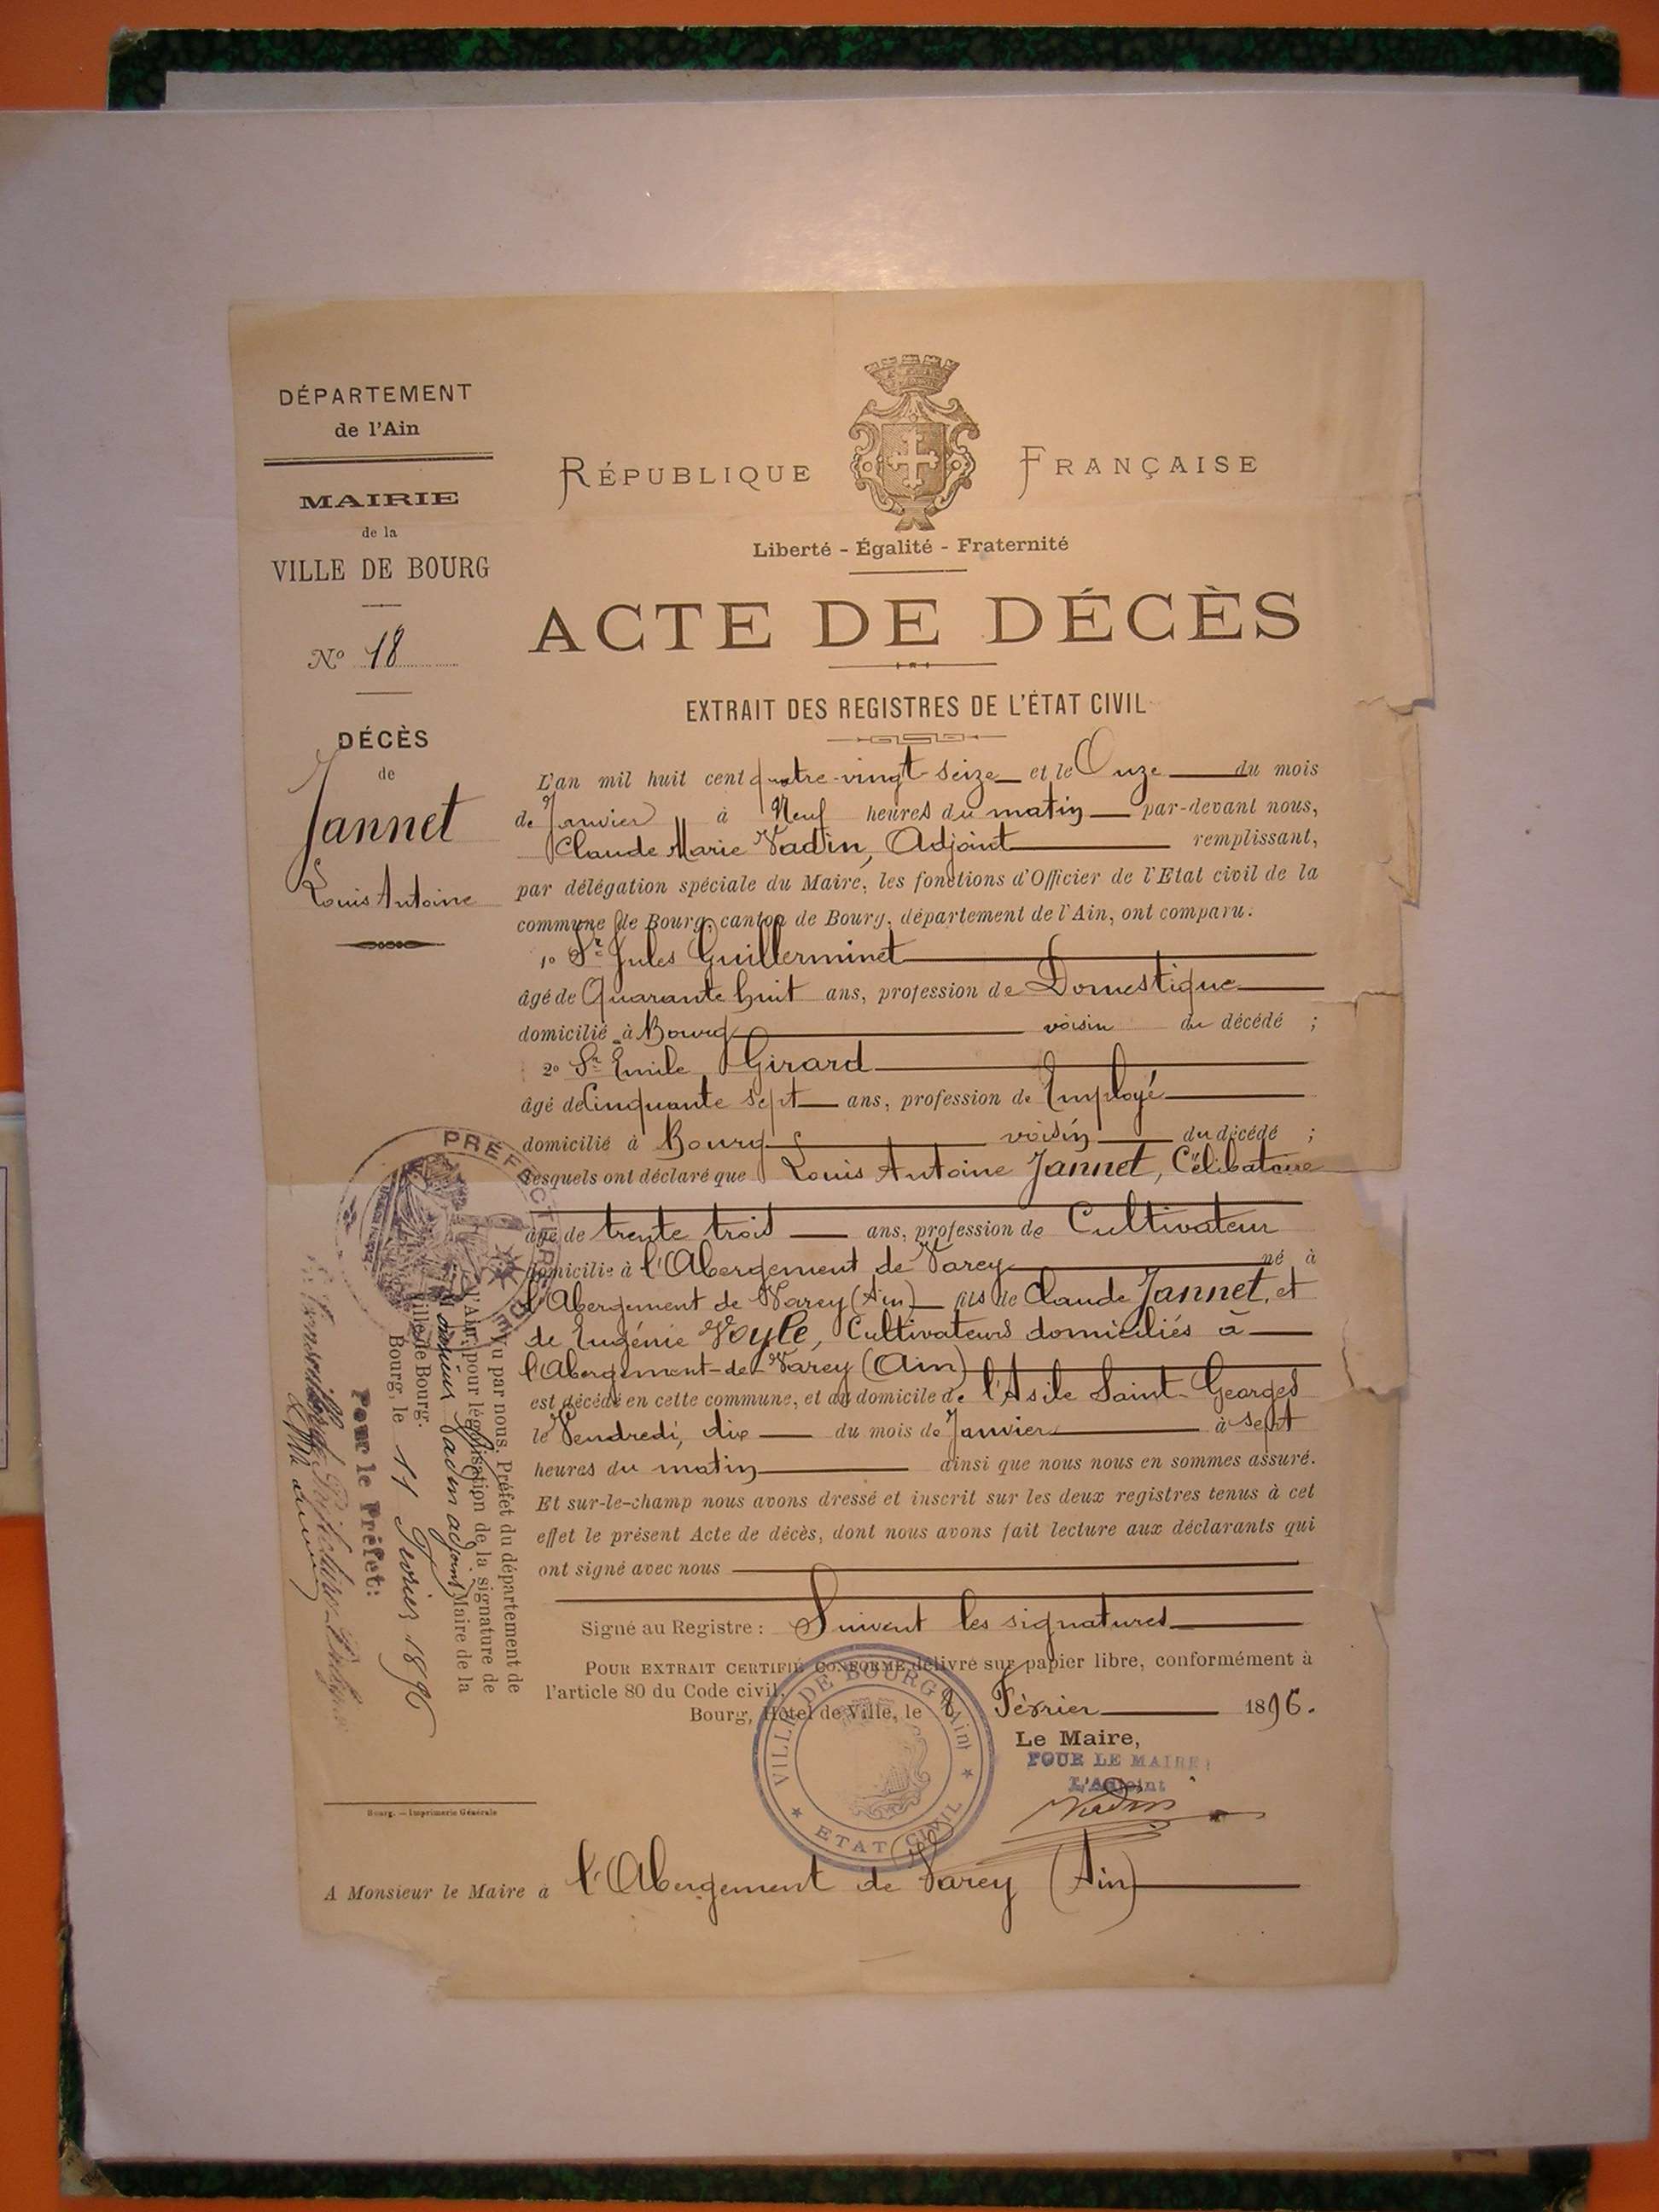 DÉPARTEMENT
de l'Ain
MAIRIE
de la
VILLE DE BOURG
No 18
DÉCÈS
de
Jannet
Louis Antoine
RÉPUBLIQUE FRANÇAISE
Liberté - Égalité - Fraternité
ACTE DE DÉCÈS
EXTRAIT DES REGISTRES DE L'ÉTAT CIVIL
L'an mil huit cent quatre-vingt seize et le Onze du mois
de Janvier à Neuf heures du matin par-devant nous,
Claude Marie Vadin, Adjoint remplissant,
par délégation spéciale du Maire, les fonctions d'Officier de l'Etat civil de la
commune de Bourg, canton de Bourg, département de l'Ain, ont comparu.
1o Sr Jules Guillerminet
âgé de Quarante huit ans, profession de Domestique
domicilié à Bourg voisin du décédé ;
2o Sr Emile Girard
âgé de Cinquante sept ans, profession de Employé
domicilié à Bourg voisin du décédé ;
lesquels ont déclaré que Louis Antoine Jannet, Célibataire
âgé de trente trois ans, profession de Cultivateur
domicilié à l'Abergement de Varey né à
l'Abergement de Varey (Ain) fils de Claude Jannet, et
de Eugénie Voyle, Cultivateurs domiciliés à
l'Abergement-de-Varey (Ain)
est décédé en cette commune, et au domicile de l'Asile Saint-Georges
le Vendredi, dix du mois de Janvier à sept
heures du matin ainsi que nous nous en sommes assuré.
Et sur-le-champ nous avons dressé et inscrit sur les deux registres tenus à cet
effet le présent Acte de décès, dont nous avons fait lecture aux déclarants qui
ont signé avec nous
Signé au Registre : Suivent les signatures
POUR EXTRAIT CERTIFIÉ CONFORME, délivré sur papier libre, conformément à
l'article 80 du Code civil.
Bourg, Hôtel de Ville, le 8 Février 1896.
Le Maire,
POUR LE MAIRE:
L'Adjoint
Vadin
VILLE DE BOURG (Ain)
ETAT CIVIL
PRÉFECTURE DE
Vu par nous, Préfet du département de
l'Ain, pour légalisation de la signature de
M onsieur Vadin adjoint Maire de la
Ville de Bourg.
Bourg, le 11 Février 1896
Pour le Préfet:
Bourg. — Imprimerie Générale
A Monsieur le Maire à l'Abergement de Varey (Ain)